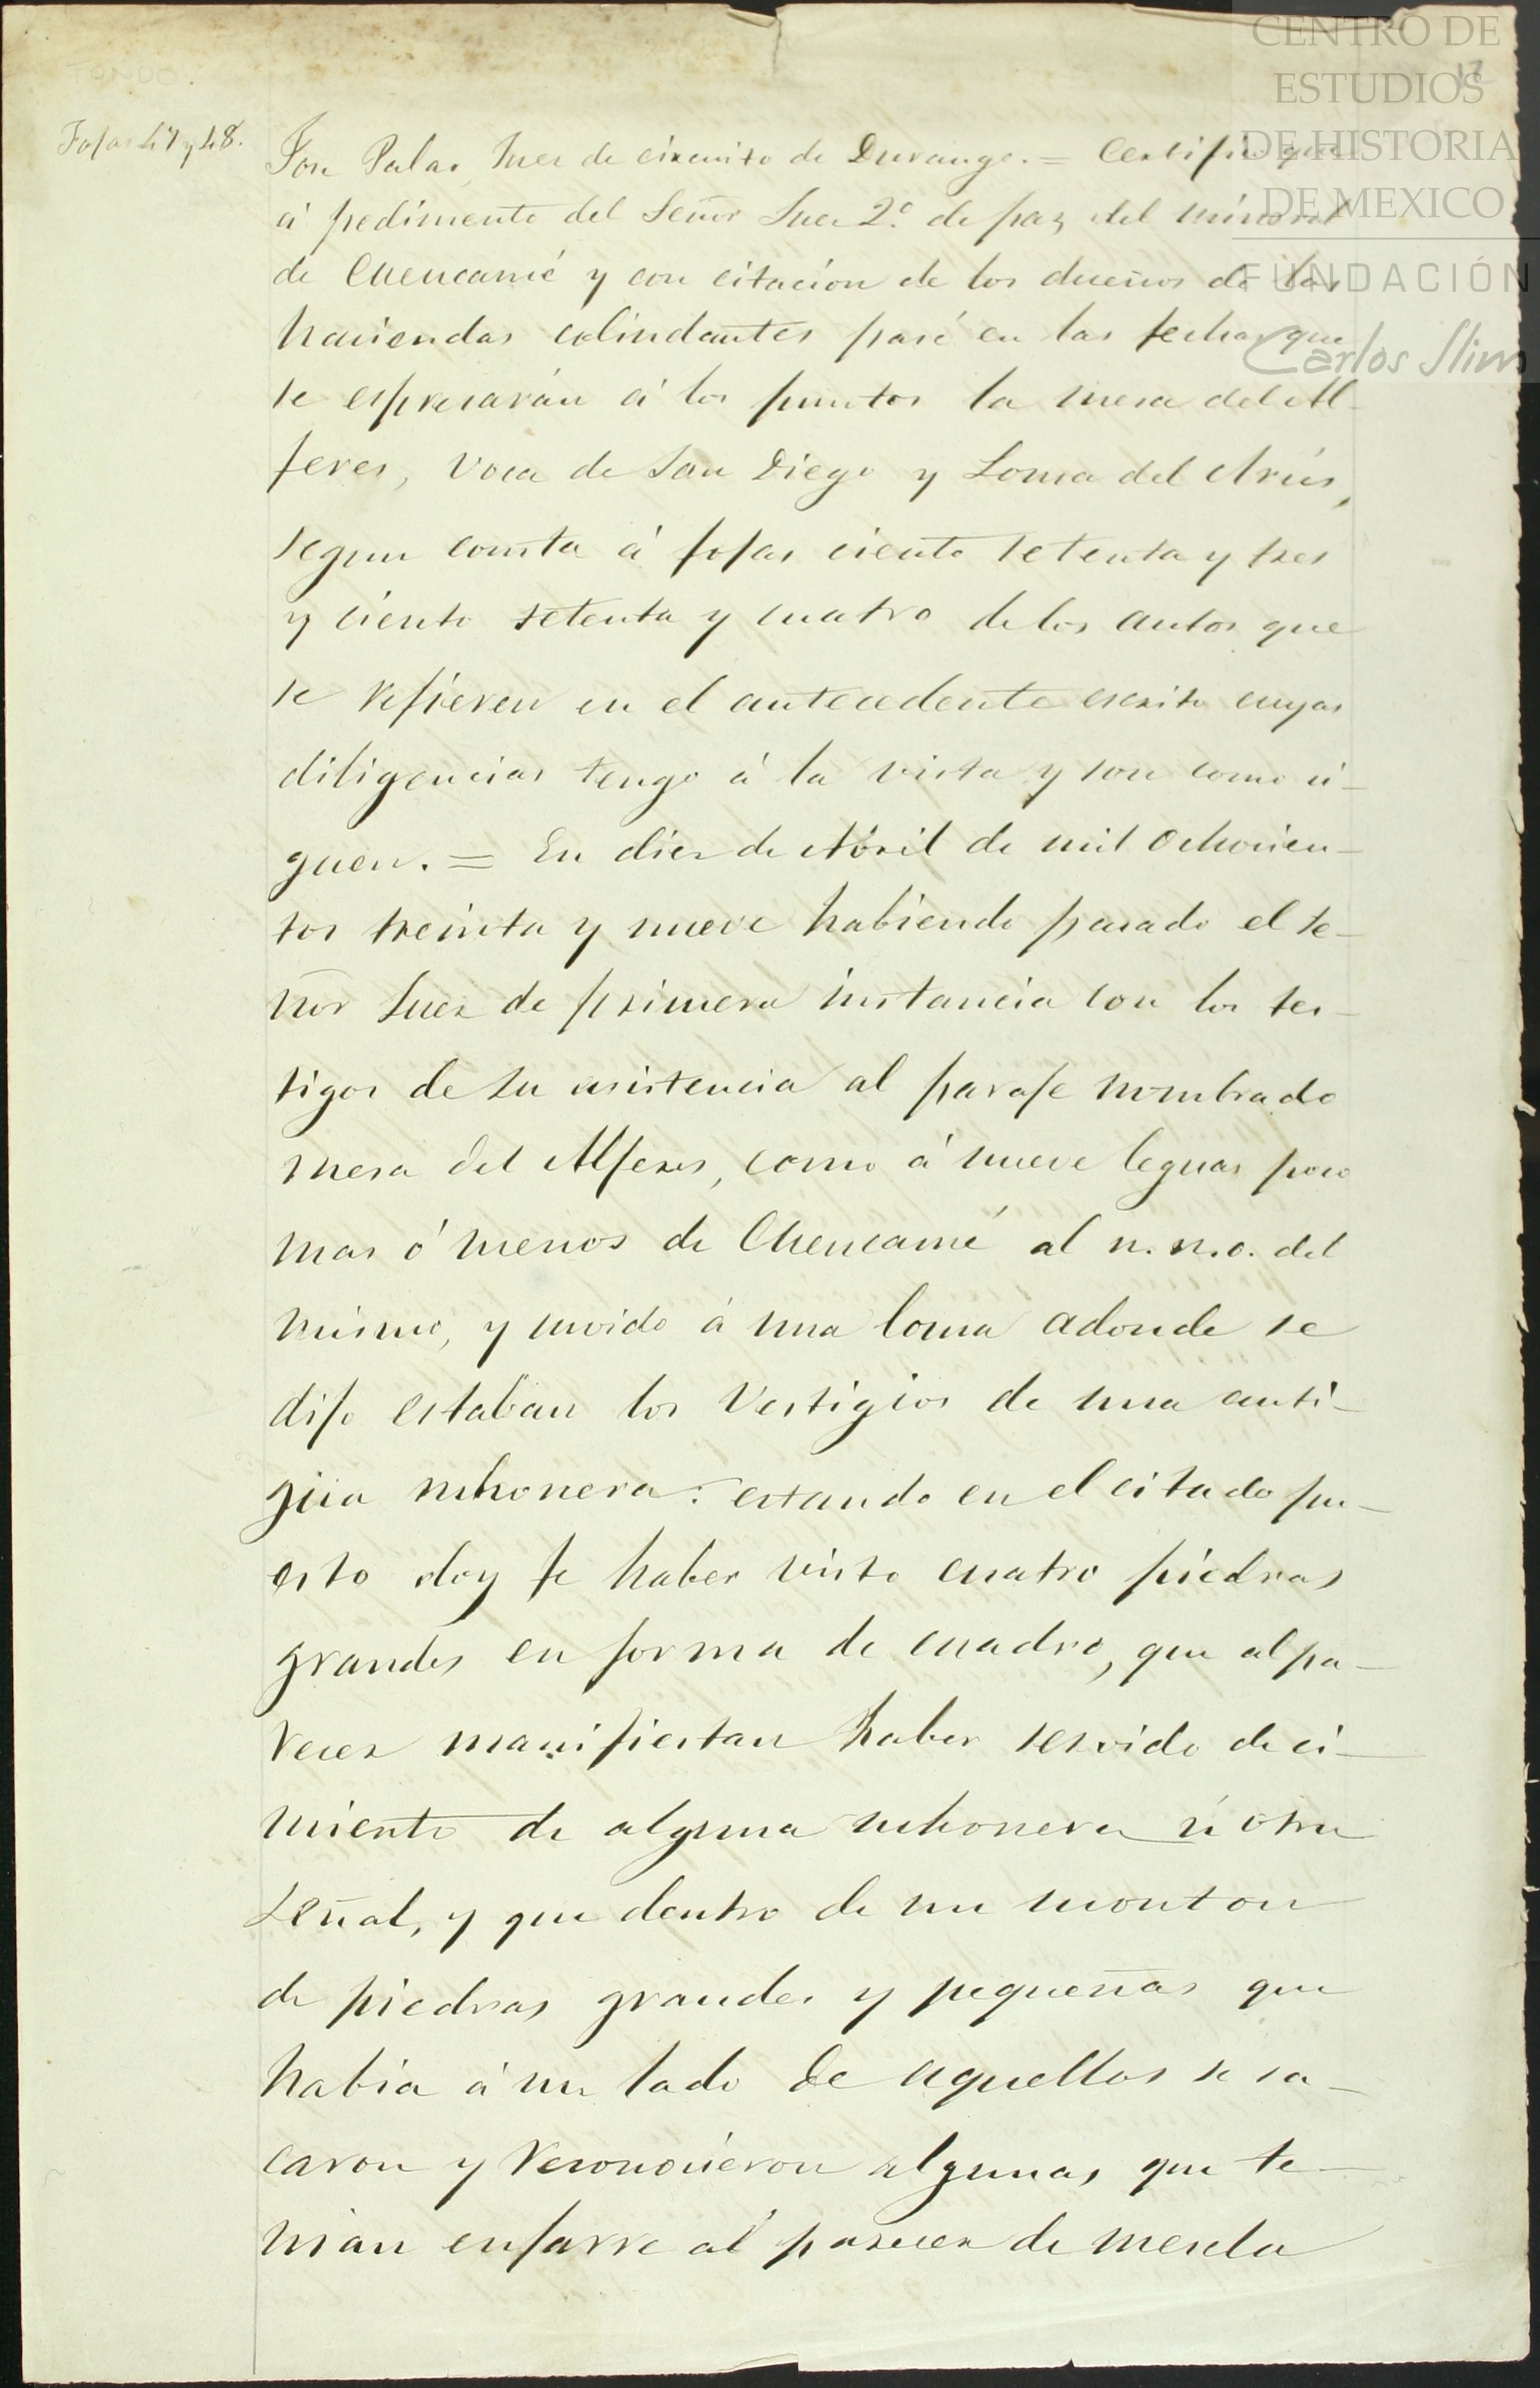 TONDO.
12
CENTRO DE
ESTUDIOS
DE HISTORIA
DE MEXICO
FUNDACIÓN
Carlos Slim
Fojas 47 y 48.
Palas, Juez de circuito de Durango. = Certifico que
á pedimento del Señor Juez 2º de paz del mineral
de Cuencamé y con citacion de los dueños de las
haciendas colindantes pasé en las fechas que
se espresarán á los puntos la mesa del Al-
feres, Voca de San Diego y Loma del
segun consta á fojas ciento setenta y tres
y ciento setenta y cuatro de los autos que
se refieren en el antecedente escrito cuyas
diligencias tengo á la vista y son como si-
guen. = En diez de Abril de mil ochocien-
tos treinta y nueve habiendo pasado el se-
ñor Juez de primera instancia con los tes-
tigos de su asistencia al paraje nombrado
mesa del Alferes, como á nueve leguas poco
mas ó menos de Cuencamé al n.n.o. del
mismo, y suvido á una loma adonde se
dijo estaban los Vestigios de una anti-
güa mhonera: estando en el citado pu-
esto doy fe haber visto cuatro piedras
grandes en forma de cuadro, que al pa-
recer manifiestan haber servido de ci-
miento de alguna mhonera ú otra
señal, y que dentro de un monton
de piedras grandes y pequeñas que
habia á un lado de aquellas se sa-
caron y reconocieron algunas que te-
nian enjarre al parecer de mescla